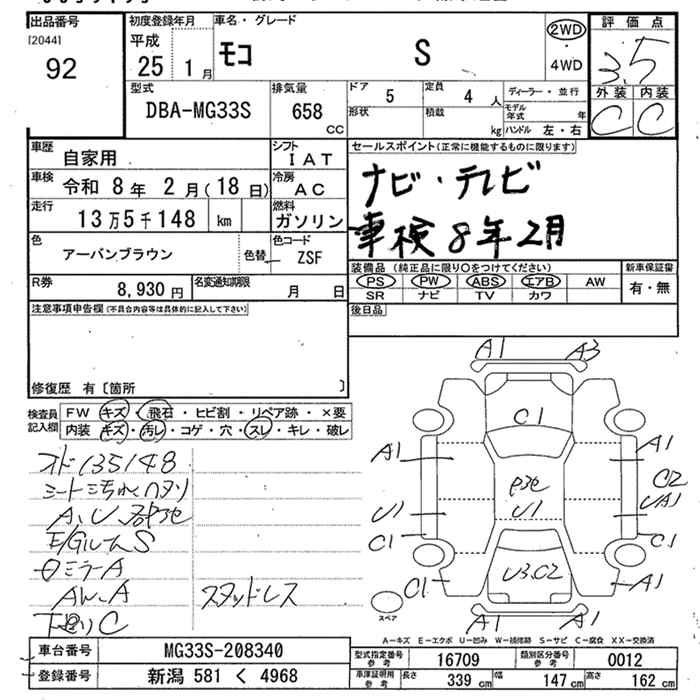 出品番号 初度登録年月 車名・グレード 評価点
[2044] 92 平成 25年 1月 モコ S 2WD・4WD 3.5
型式 排気量 ドア 5 定員 4人 ディーラー・並行 外装 内装
DBA-MG33S 658 CC 形状 積載 kg モデル年式 年 ハンドル 左・右 C C
車歴 自家用 シフト IAT セールスポイント(正常に機能するものに限ります)
車検 令和 8年 2月(18日) 冷房 AC ナビ・テレビ
走行 13万5千148 km 燃料 ガソリン 車検8年2月
色 アーバンブラウン 色替 色コード ZSF 装備品(純正品に限り○をつけてください) 新車保証書
R券 8,930円 名変通知期限 月 日 PS PW ABS エアB AW 有・無
SR ナビ TV カワ
注意事項申告欄(不具合内容等は具体的に記入して下さい) 後日品
修復歴 有[箇所 ]
検査員記入欄 FW キズ・飛石・ヒビ割・リペア跡・×要
内装 キズ・汚れ・コゲ・穴・スレ・キレ・破レ
A1 A3
C1
A1 A1
C2
U1 U1 UA1
C1 C1
C1 U3C2 A1
A1 A1
スペア
オド135148
シート汚れヘタリ
A、U
E/GルームS
ミラーA
AW、A スタッドレス
下廻りC
A-キズ E-エクボ U-凹み W-補修跡 S-サビ C-腐食 XX-交換済
車台番号 MG33S-208340 型式指定番号 参考 16709 類別区分番号 参考 0012
登録番号 新潟 581 く 4968 車庫証明用 参考 長さ 339 cm 幅 147 cm 高さ 162 cm